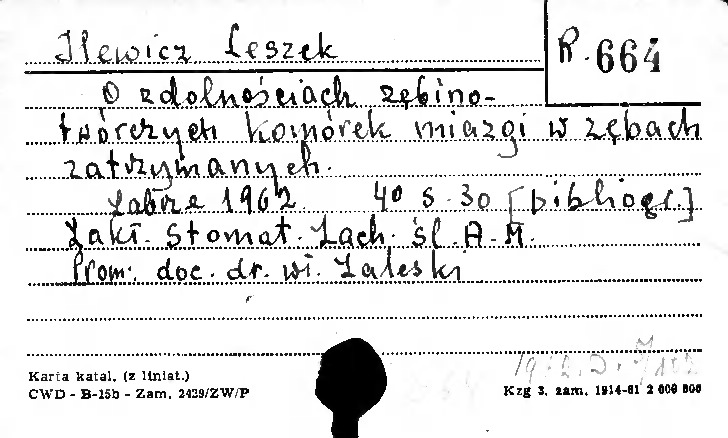 Ilewicz Leszek
R. 664
O zdolnościach zębino-
twórczych komórek miazgi w zębach
zatrzymanych.
Zabrze 1962 4° s. 30 [bibliogr.]
Zakł. Stomat. Zach. śl. A. M.
Prom: doc. dr. wi. Zaleski
Karta katal. (z liniat.)
CWD - B-15b - Zam. 2439/ZW/P
Kzg 3. zam. 1914-61 2 000 000